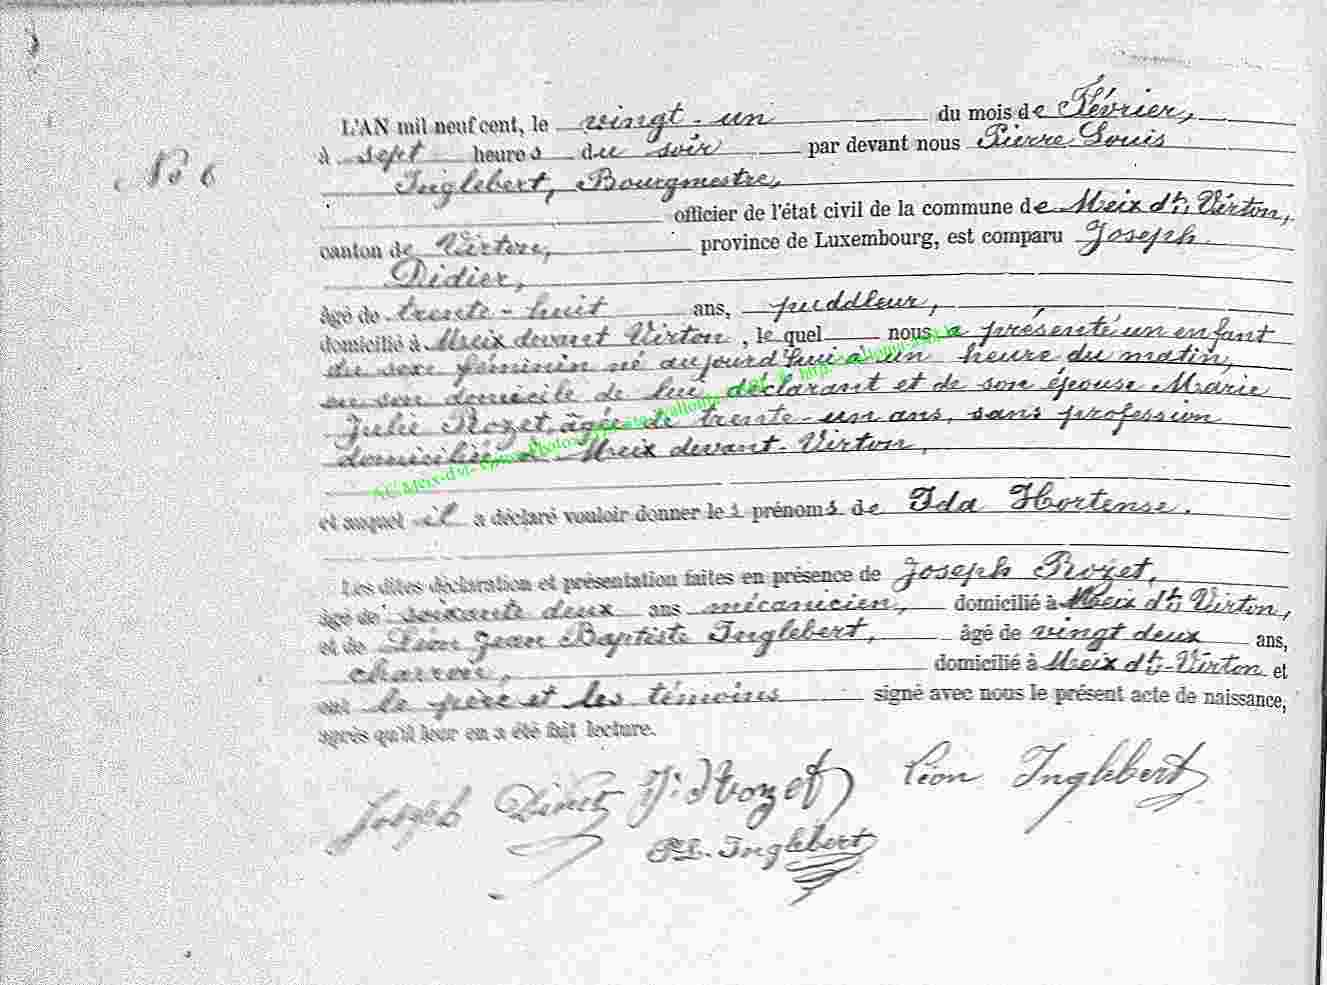 L'AN mil neuf cent, le vingt-un du mois de Février,
à sept heures du soir par devant nous Pierre Louis
No 6
Inglebert, Bourgmestre,
officier de l'état civil de la commune de Meix dt Virton,
canton de Virton, province de Luxembourg, est comparu Joseph
Didier,
âgé de trente-huit ans, puddleur,
domicilié à Meix devant Virton, le quel nous a présenté un enfant
du sexe féminin né aujourd'hui à un heure du matin,
en son domicile de lui déclarant et de son épouse Marie
Julie Rozet, âgée de trente-un ans, sans profession
domiciliée à Meix devant-Virton,
et auquel il a déclaré vouloir donner les prénoms de Ida Hortense.
Les dites déclaration et présentation faites en présence de Joseph Rozet,
âgé de soixante deux ans mécanicien, domicilié à Meix dt Virton,
et de Léon Jean Baptiste Inglebert, âgé de vingt deux ans,
charron, domicilié à Meix dt-Virton et
ont le père et les témoins signé avec nous le présent acte de naissance,
après qu'il leur en a été fait lecture.
Joseph J. Rozet Léon Inglebert
PL. Inglebert